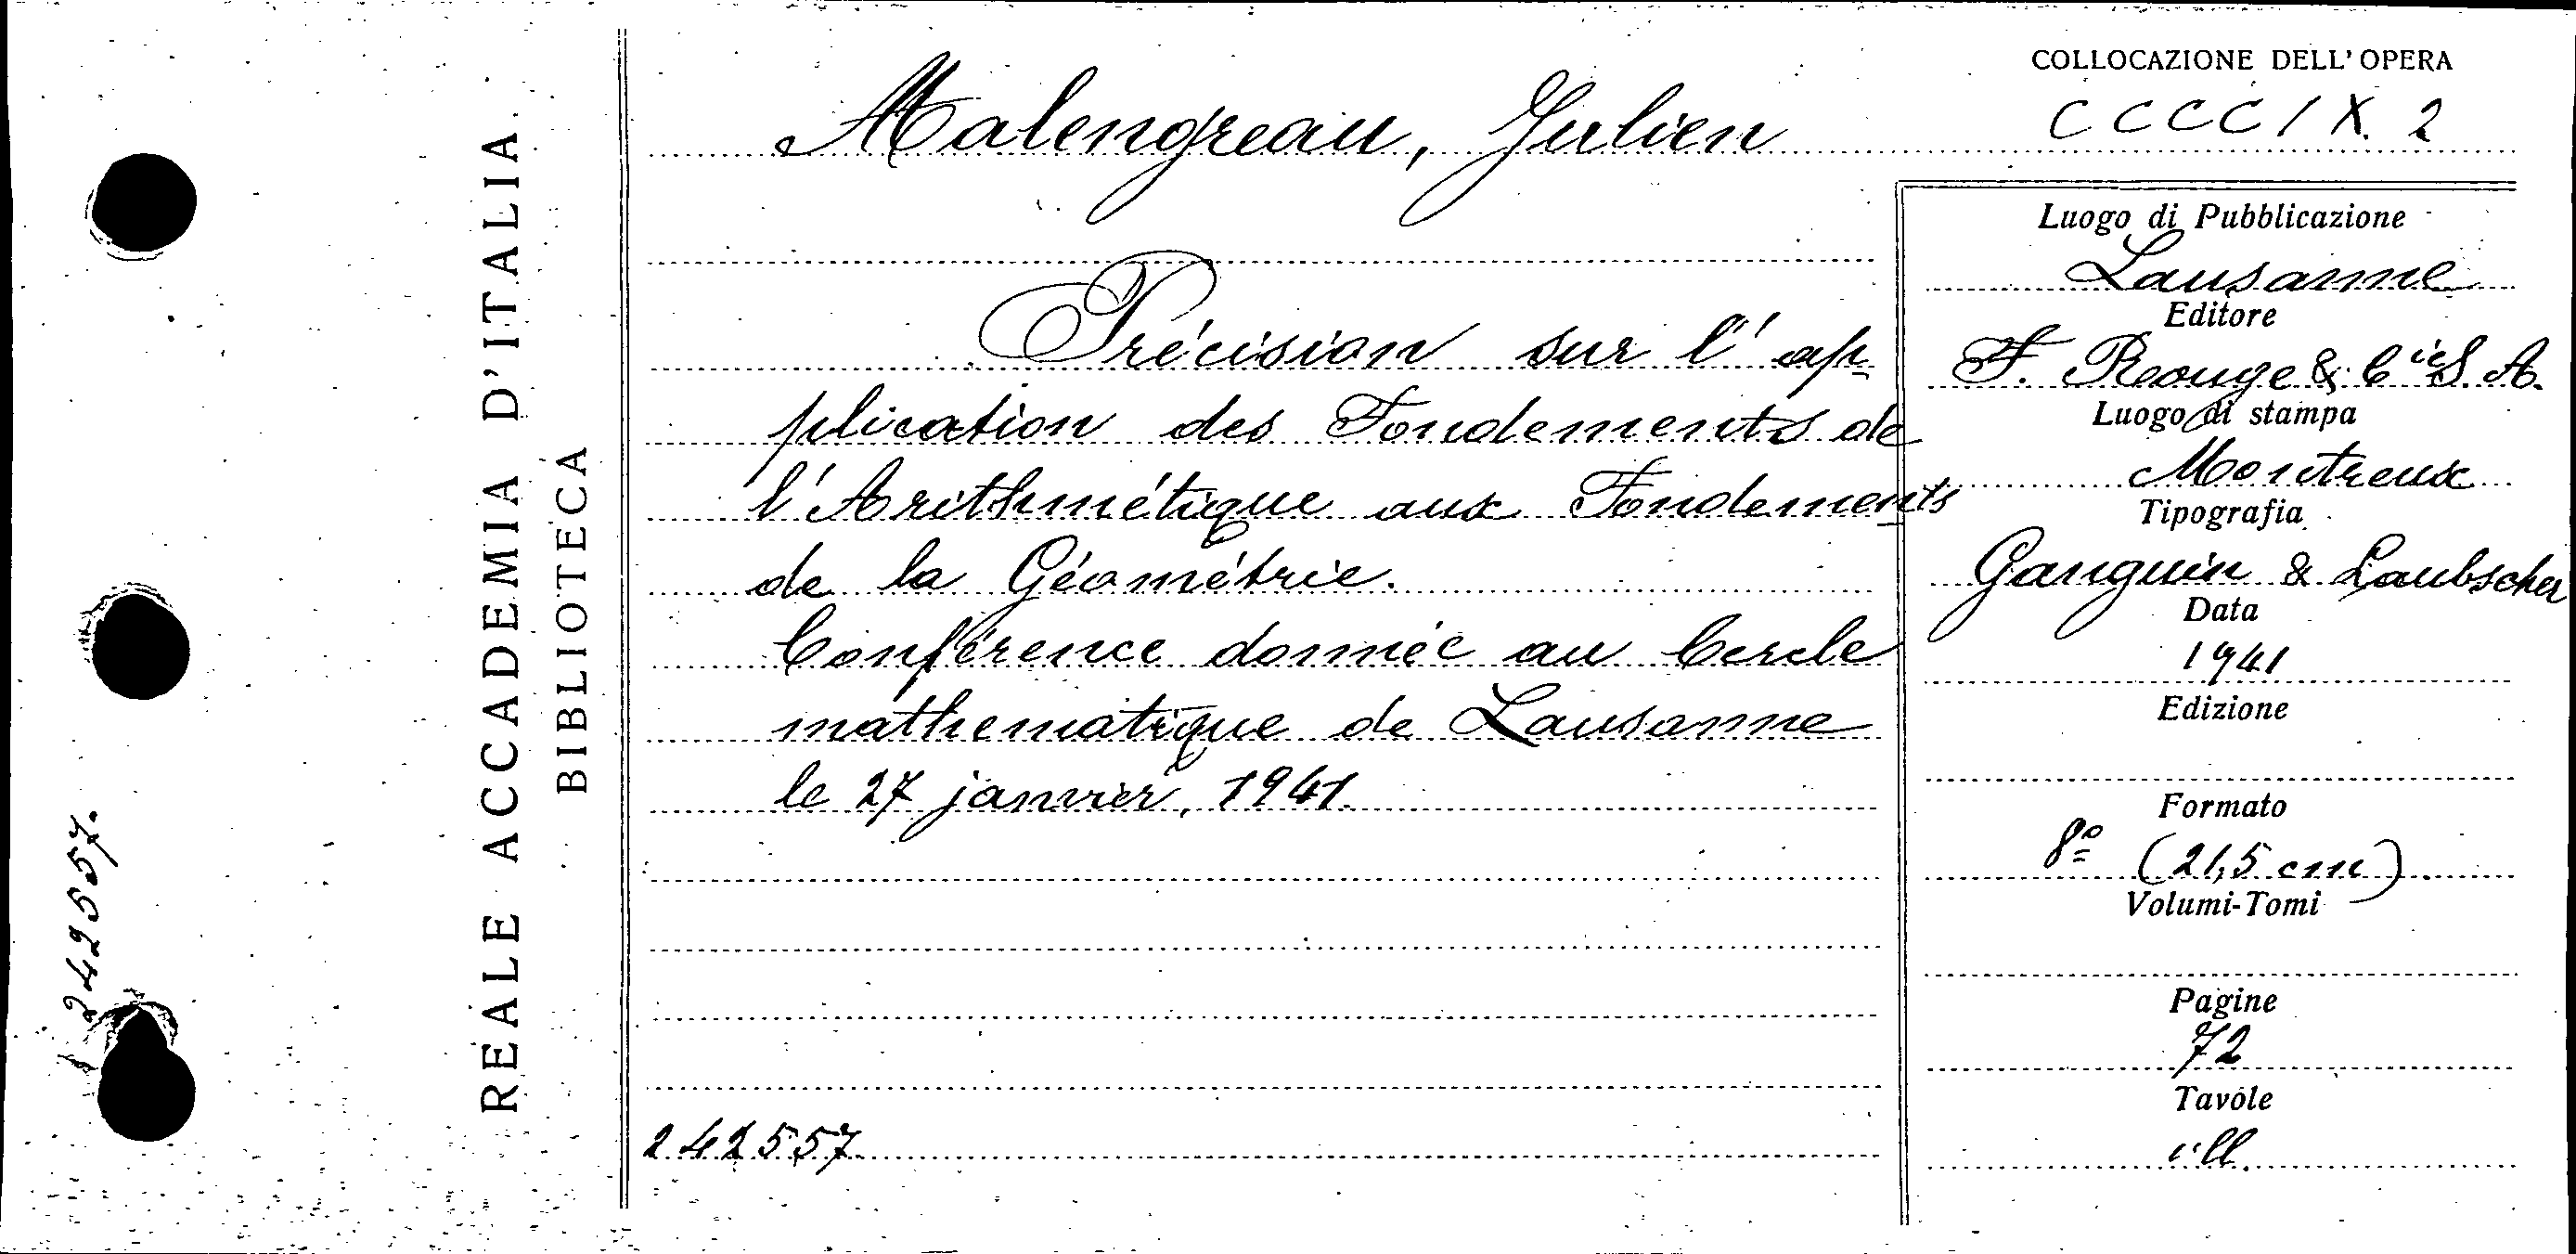 242557.
REALE ACCADEMIA D'ITALIA
BIBLIOTECA
Malengreau, Julien
Précision sur l'ap=
plication des Fondements de
l'Arithmétique aux Fondements
de la Géométrie.
Conférence donnée au Cercle
mathematique de Lausanne
le 27 janvier, 1941.
242557
COLLOCAZIONE DELL' OPERA
CCCCIX. 2
Luogo di Pubblicazione
Lausanne
Editore
F. Rouge & Cie S. A.
Luogo di stampa
Montreux
Tipografia
Ganguin & Laubscher
Data
1941
Edizione
Formato
8º (21,5 cm)
Volumi-Tomi
Pagine
72
Tavole
ill.